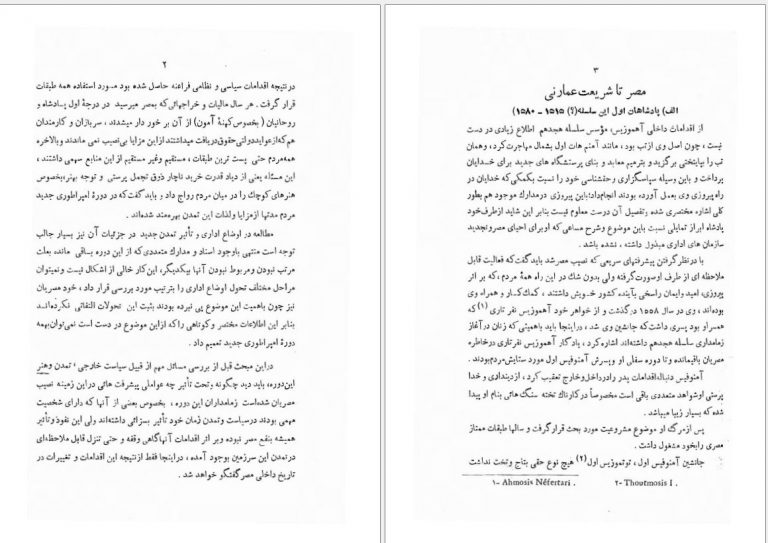 ۲
در نتیجه اقدامات سیاسی و نظامی فراعنه حاصل شده بود مورد استفاده همه طبقات
قرار گرفت . هر سال مالیات و خراجهائی که بمصر میرسید در درجهٔ اول پادشاه و
روحانیان (بخصوص کهنهٔ آمون) از آن بر خوردار میشدند ، سربازان و کارمندان
هم که از عواید دولتی حقوق دریافت میداشتند از این مزایا بی نصیب نمی ماندند و بالاخره
همه مردم حتی پست ترین طبقات ، مستقیم و غیر مستقیم از این منابع سهمی داشتند ،
این مسئله یعنی ازدیاد قدرت خرید ناچار ذوق تجمل پرستی و توجه بهنر ، بخصوص
هنرهای کوچک را در میان مردم رواج داد و باید گفت که در دورهٔ امپراطوری جدید
مردم مدتها از مزایا ولذات این تمدن بهره مند شده اند .
مطالعه در اوضاع اداری و تأثیر تمدن جدید در جزئیات آن نیز بسیار جالب
توجه است منتهی باوجود اسناد و مدارک متعددی که از این دوره باقی مانده بعلت
مرتب نبودن و مربوط نبودن آنها بیکدیگر، این کار خالی از اشکال نیست و نمیتوان
مراحل مختلف تحول اوضاع اداری را بترتیب مورد بررسی قرار داد ، خود مصریان
نیز چون باهمیت این موضوع پی نبرده بودند بثبت این تحولات التفاتی نکرده اند
بنابر این اطلاعات مختصر و کوتاهی را که از این موضوع در دست است نمی توان بهمه
دورهٔ امپراطوری جدید تعمیم داد .
در این مبحث قبل از بررسی مسائل مهم از قبیل سیاست خارجی ، تمدن وهنر
این دوره، باید دید چگونه وتحت تأثیر چه عواملی پیشرفت هائی در این زمینه نصیب
مصریان شده است زمامداران این دوره ، بخصوص بعضی از آنها که دارای شخصیت
مهمی بودند در سیاست وتمدن زمان خود تأثیر بسزائی داشته اند ولی این نفوذ وتأثیر
همیشه بنفع مصر نبوده وبر اثر اقدامات آنها گاهی وقفه و حتی تنزل قابل ملاحظه ای
در تمدن این سرزمین بوجود آمده ، در اینجا فقط از نتیجه این اقدامات و تغییرات در
تاریخ داخلی مصر گفتگو خواهد شد .
۳
مصر تا شریعت عمارنی
الف) پادشاهان اول این سلسله (؟) ۱۵۱۵ - ۱۵۸۰)
از اقدامات داخلی آهموزیس، مؤسس سلسله هجدهم اطلاع زیادی در دست
نیست ، چون اصل وی از تب بود ، مانند آمنم هات اول بشمال مهاجرت کرد ، وهمان
تب را بپایتختی برگزید و بترمیم معابد و بنای پرستشگاه های جدید برای خدایان
پرداخت و باین وسیله سپاسگزاری و حقشناسی خود را نسبت بکمکی که خدایان در
راه پیروزی وی بعمل آورده بودند انجام داد؛ باین پیروزی در مدارک موجود هم بطور
کلی اشاره مختصری شده وتفصیل آن درست معلوم نیست بنابر این شاید از طرف خود
پادشاه ابراز تمایلی نسبت باین موضوع وشرح مساعی که او برای احیای مصر و تجدید
سازمان های اداری مبذول داشته ، نشده باشد .
با در نظر گرفتن پیشرفتهای سریعی که نصیب مصر شد باید گفت که فعالیت قابل
ملاحظه ای از طرف او صورت گرفته ولی بدون شک در این راه همهٔ مردم ، که بر اثر
پیروزی، امید وایمان راسخی بآینده کشور خویش داشتند ، کمک کار و همراه وی
بوده اند ، وی در سال ۱۵۵۸ در گذشت و از خواهر خود آهموزیس نفر تاری (۱) که
همسر او بود پسری داشت که جانشین وی شد ، در اینجا باید باهمیتی که زنان در آغاز
زمامداری سلسله هجدهم داشته اند اشاره کرد ، یادگار آهموزیس نفر تاری در خاطره
مصریان باقیمانده و تا دوره سفلی او وپسرش آمنوفیس اول مورد ستایش مردم بودند .
آمنوفیس دنباله اقدامات پدر را در داخل وخارج تعقیب کرد ، از دینداری و خدا
پرستی او شواهد متعددی باقی است مخصوصاً در کارناک تخته سنگ هائی بنام او پیدا
شده که بسیار زیبا میباشد .
پس از مرگ او موضوع مشروعیت مورد بحث قرار گرفت و سالها طبقات ممتاز
مصری را بخود مشغول داشت .
جانشین آمنوفیس اول ، توتموزیس اول (۲) هیچ نوع حقی بتاج وتخت نداشت
۱- Ahmosis Néfertari .    ۲- Thoutmosis I .